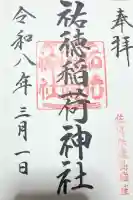 奉拝
祐徳稲荷神社
令和八年三月一日